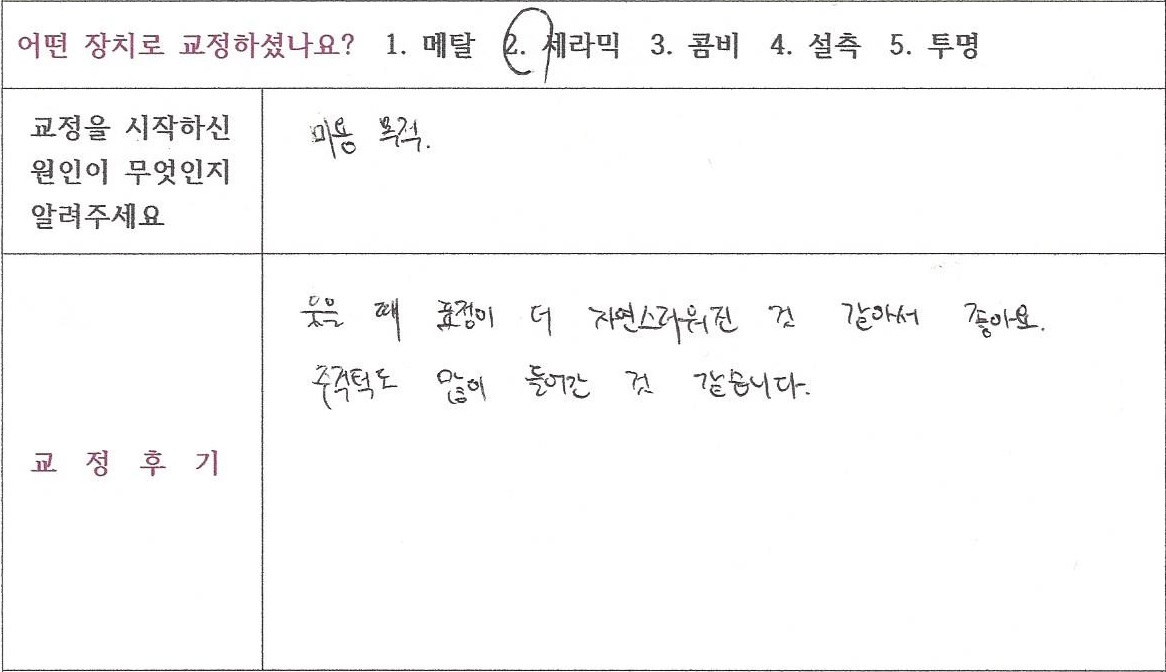 어떤 장치로 교정하셨나요? 1. 메탈 2. 세라믹 3. 콤비 4. 설측 5. 투명
교정을 시작하신
원인이 무엇인지
알려주세요
미용 목적.
웃을 때 표정이 더 자연스러워진 것 같아서 좋아요.
주걱턱도 많이 들어간 것 같습니다.
교 정 후 기